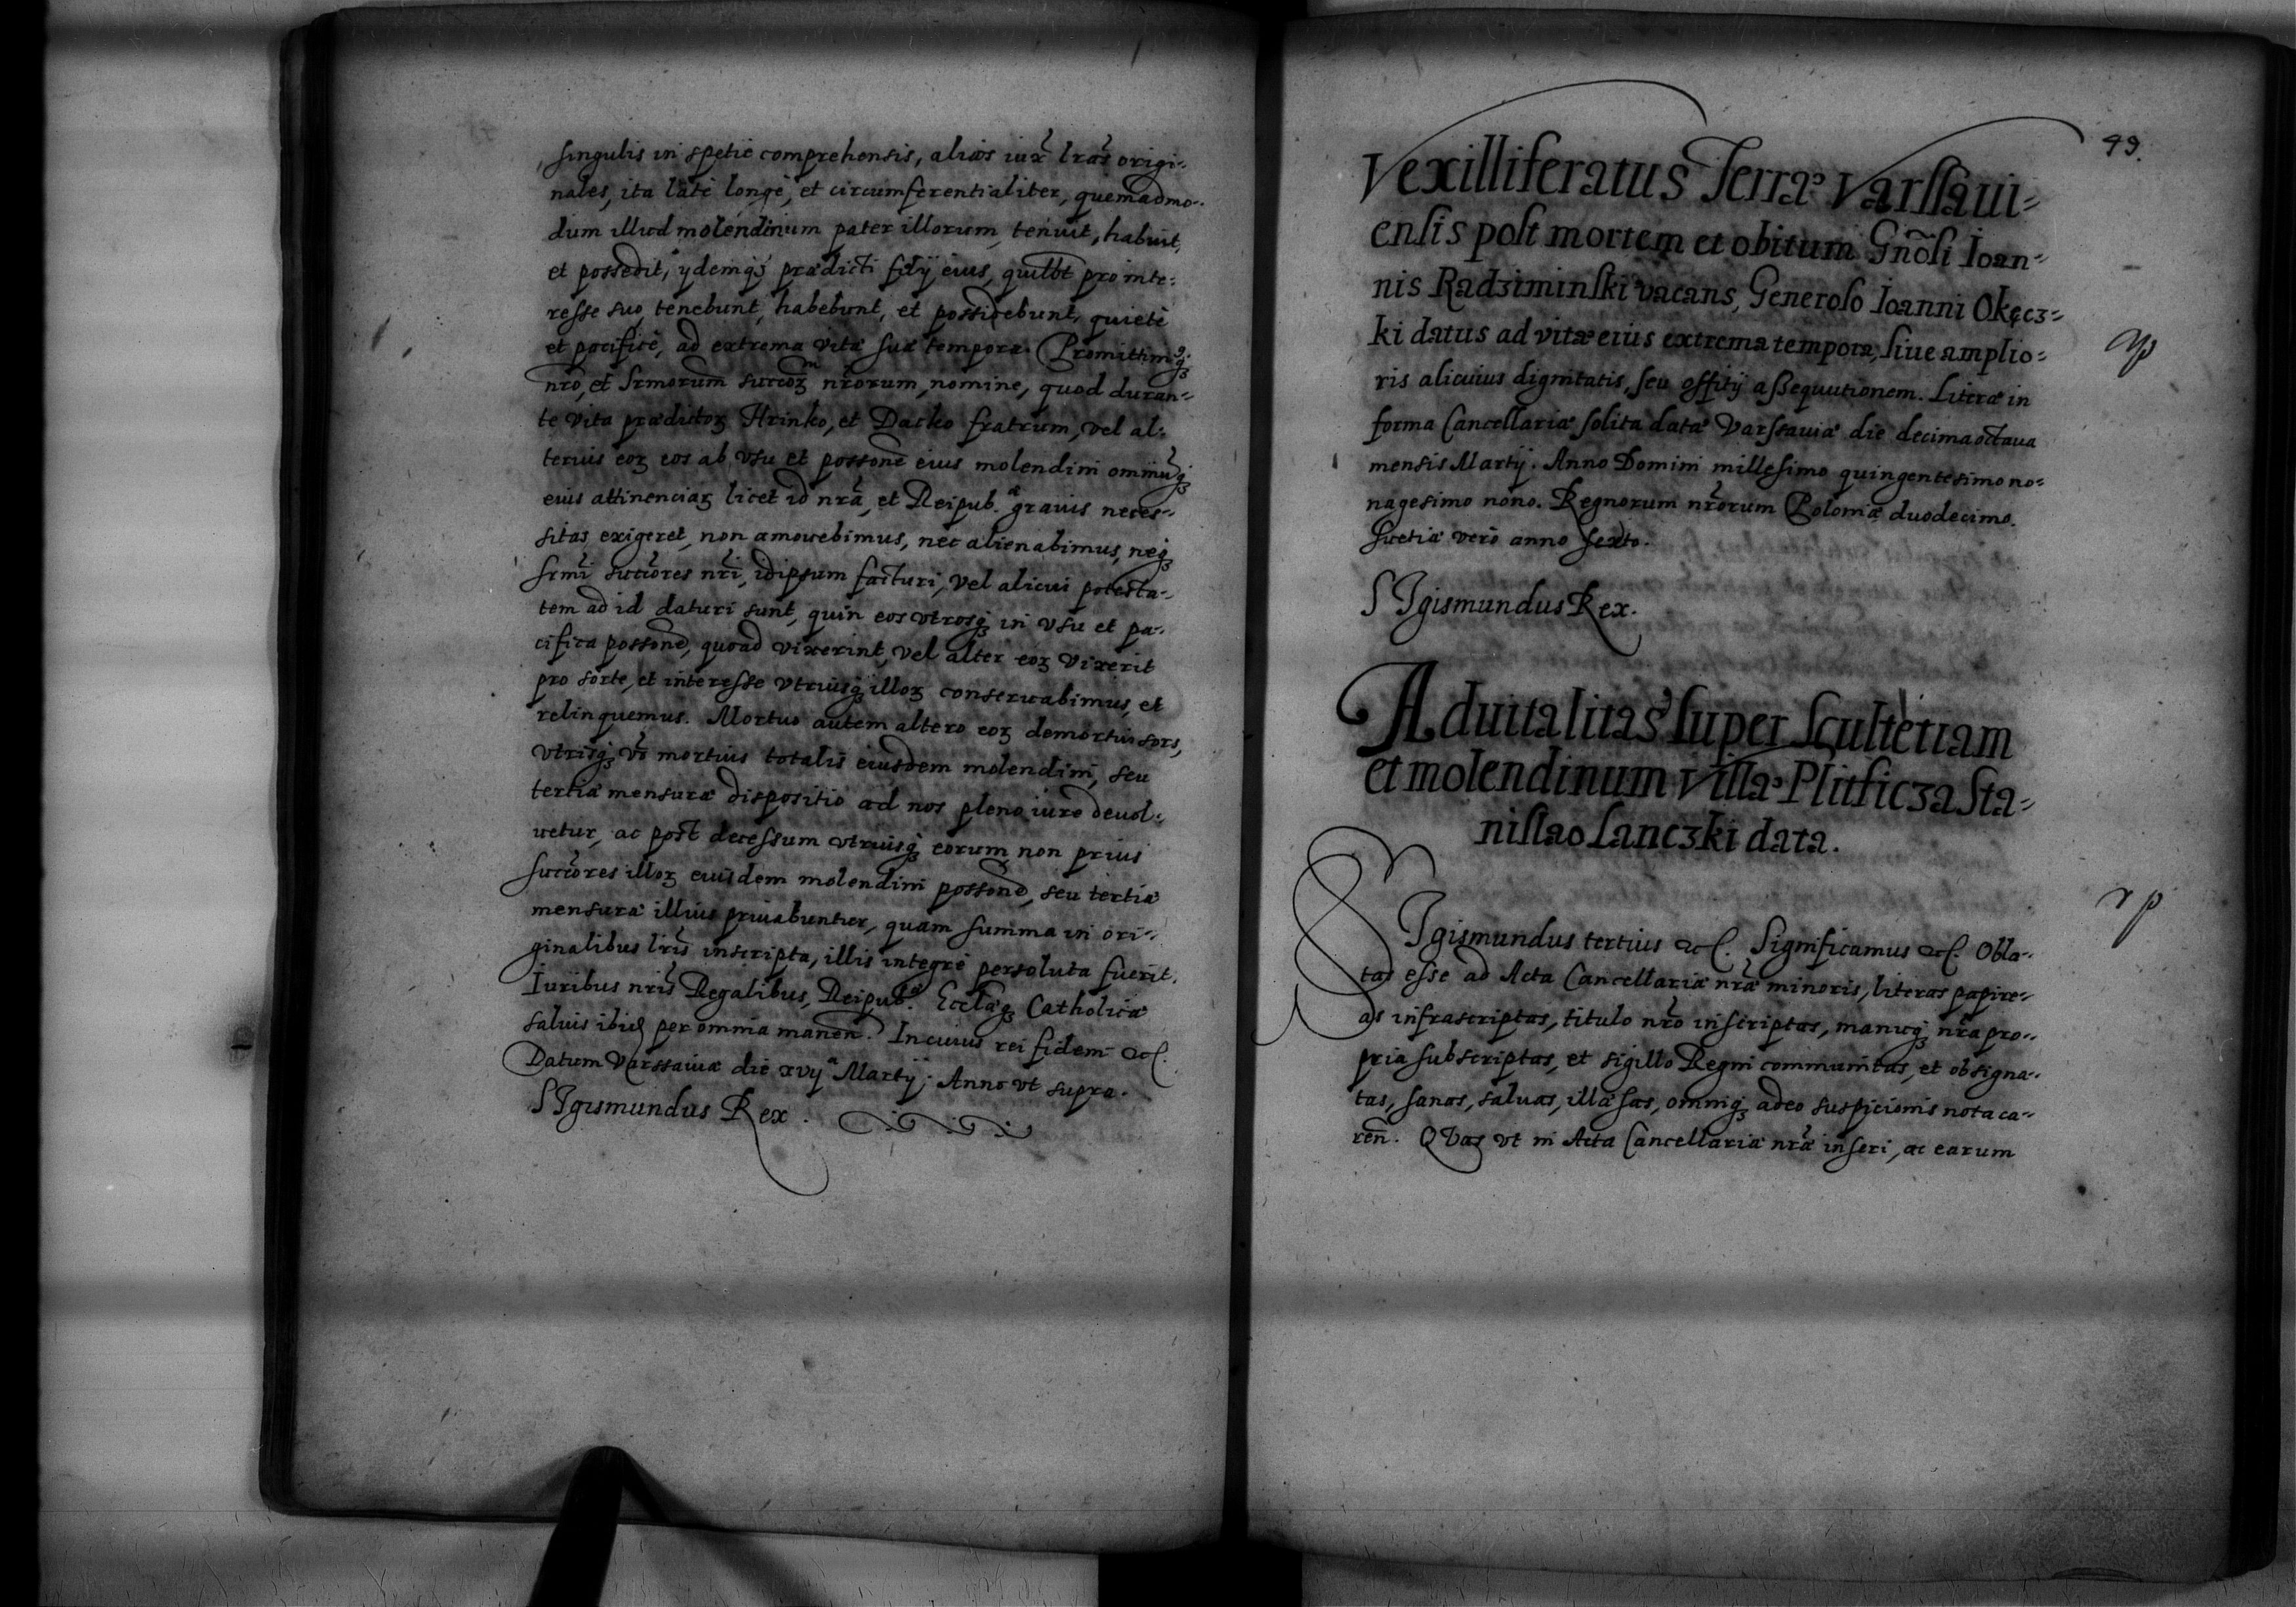 singulis in spetie comprehensis, alias iux̃ lrãs origi-
nales, ita latè longè, et circumferentialiter, quemadmo-
dum illud molendinum pater illorum, tenuit, habuit,
et possedit, ydemq₃ prædicti filij eius, quilbt pro inte-
resse suo, tenebunt, habebunt, et possidebunt, quietè
et pacificè, ad extrema vitæ suæ tempora. Promittimusq₃
nrõ, et Srmorum succorꝫ nrõrum, nomine, quod duran-
te vita prædictoꝫ Hrinko, et Dacko fratrum, vel al-
terius eoꝫ eos ab vsu et possone eius molendini omniũq₃
eius attinenciaꝫ licet id nrã, et Reipub. gravis neces-
sitas exigeret, non amovebimus, nec alienabimus, neq₃
Srmi succores nri, idipsum facturi, vel alicui potesta-
tem ad id daturi sunt, quin eos vtrosq₃ in vsu et pa-
cifica possone, quoad vixerint, vel alter eoꝫ vixerit
pro sorte, et interesse vtriusq₃ illoꝫ conservabimus, et
relinquemus. Mortuo autem altero eoꝫ demortui sors,
vtrisq₃ vo mortuis totalis eiusdem molendini, seu
tertiæ mensuræ dispositio ad nos pleno iure devol-
vetur, ac post decessum vtriusq₃ eorum non prius
succores illoꝫ eiusdem molendini possone, seu tertia
mensura illius privabuntur, quam summa in ori-
ginalibus lris inscripta, illis integrè persoluta fuerit.
Iuribus nris Regalibus, Reipub. Ecclæq₃ Catholicæ
salvis ibid per omnia manen. In cuius rei fidem etc.
Datum Varssaviæ die xvij Martij; Anno vt supra.
SIgismundus Rex.
49.
Vexilliferatus Terræ Varssavi-
ensis post mortem et obitum Gnõsi Ioan-
nis Radziminski vacans, Generoso Ioanni Okęcz-
ki datus ad vitæ eius extrema tempora, sive amplio-
ris alicuius dignitatis, seu offitij assequutionem. Literæ in
forma Cancellariæ solita datæ Varsaviæ die decima octava
mensis Martij. Anno Domini millesimo quingentesimo no-
nagesimo nono. Regnorum nrõrum Poloniæ duodecimo.
Svetiæ verò anno sexto.
SIgismundus Rex.
Advitalitas super Scultetiam
et molendinum Villæ Plitficza Sta-
nislao Lanczki data.
rp
SIgismundus tertius etc. Significamus etc. Obla-
tas esse ad Acta Cancellariæ nræ minoris, literas papire-
as infrascriptas, titulo nrõ inscriptas, manuq₃ nrã pro-
pria subscriptas, et sigillo Regni communitas, et obsigna-
tas, sanas, salvas, illæsas, omniq₃ adeo suspicionis nota ca-
ren. QVas vt in Acta Cancellariæ nræ inseri, ac earum